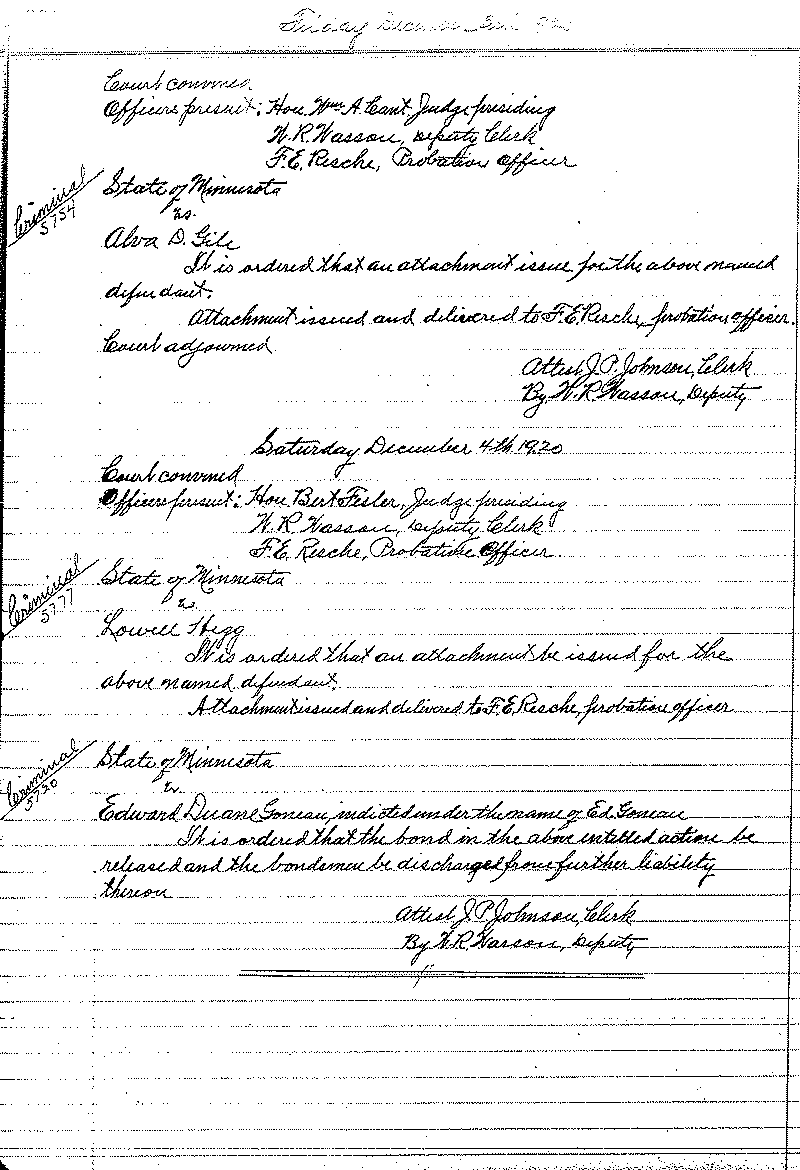 Friday December 3rd 1920
Court convened
Officers present: Hon. Wm A. Cant Judge presiding
W. R. Wasson, Deputy Clerk
F. E. Resche, Probation Officer
Criminal
5754
State of Minnesota
vs.
Alva D. Gile
It is ordered that an attachment issue for the above named
defendant.
Attachment issued and delivered to F. E. Resche, probation officer.
Court adjourned
Attest J. P. Johnson, Clerk
By W. R. Wasson, Deputy
Saturday December 4th 1920
Court convened
Officers present: Hon Bert Fesler, Judge presiding
W. R Wasson, Deputy Clerk
F. E. Resche, Probation Officer.
Criminal
5777
State of Minnesota
vs
Lowell Hegg
It is ordered that an attachment be issued for the
above named defendant.
Attachment issued and delivered to F. E. Resche, probation officer
Criminal
5720
State of Minnesota
vs.
Edward Duane Goneau, indicted under the name of Ed Goneau
It is ordered that the bond in the above entitled action be
released and the bondsmen be discharged from further liability
thereon
Attest J. P. Johnson, Clerk
By W. R. Wasson, Deputy